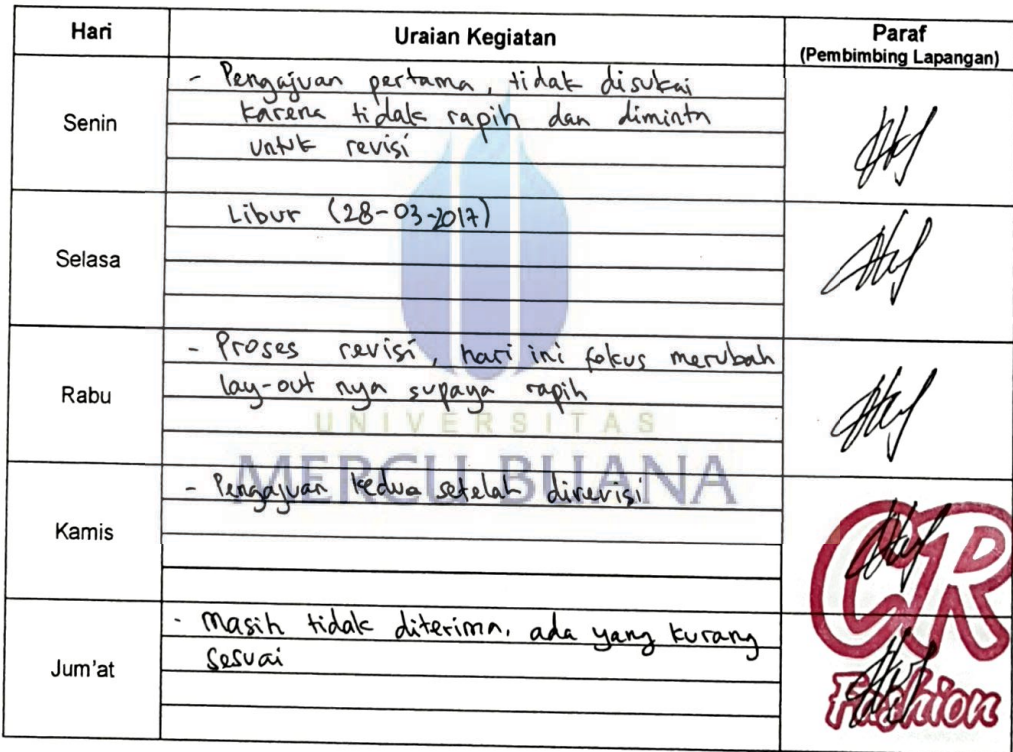 Hari Uraian Kegiatan Paraf
(Pembimbing Lapangan)
Senin
- Pengajuan pertama, tidak disukai
karena tidak rapih dan diminta
untuk revisi
Selasa
Libur (28-03-2017)
Rabu
- Proses revisi, hari ini fokus merubah
lay-out nya supaya rapih
UNIVERSITAS
MERCU BUANA
Kamis
- Pengajuan kedua setelah direvisi
Jum'at
- Masih tidak diterima, ada yang kurang
sesuai
CR
Fashion